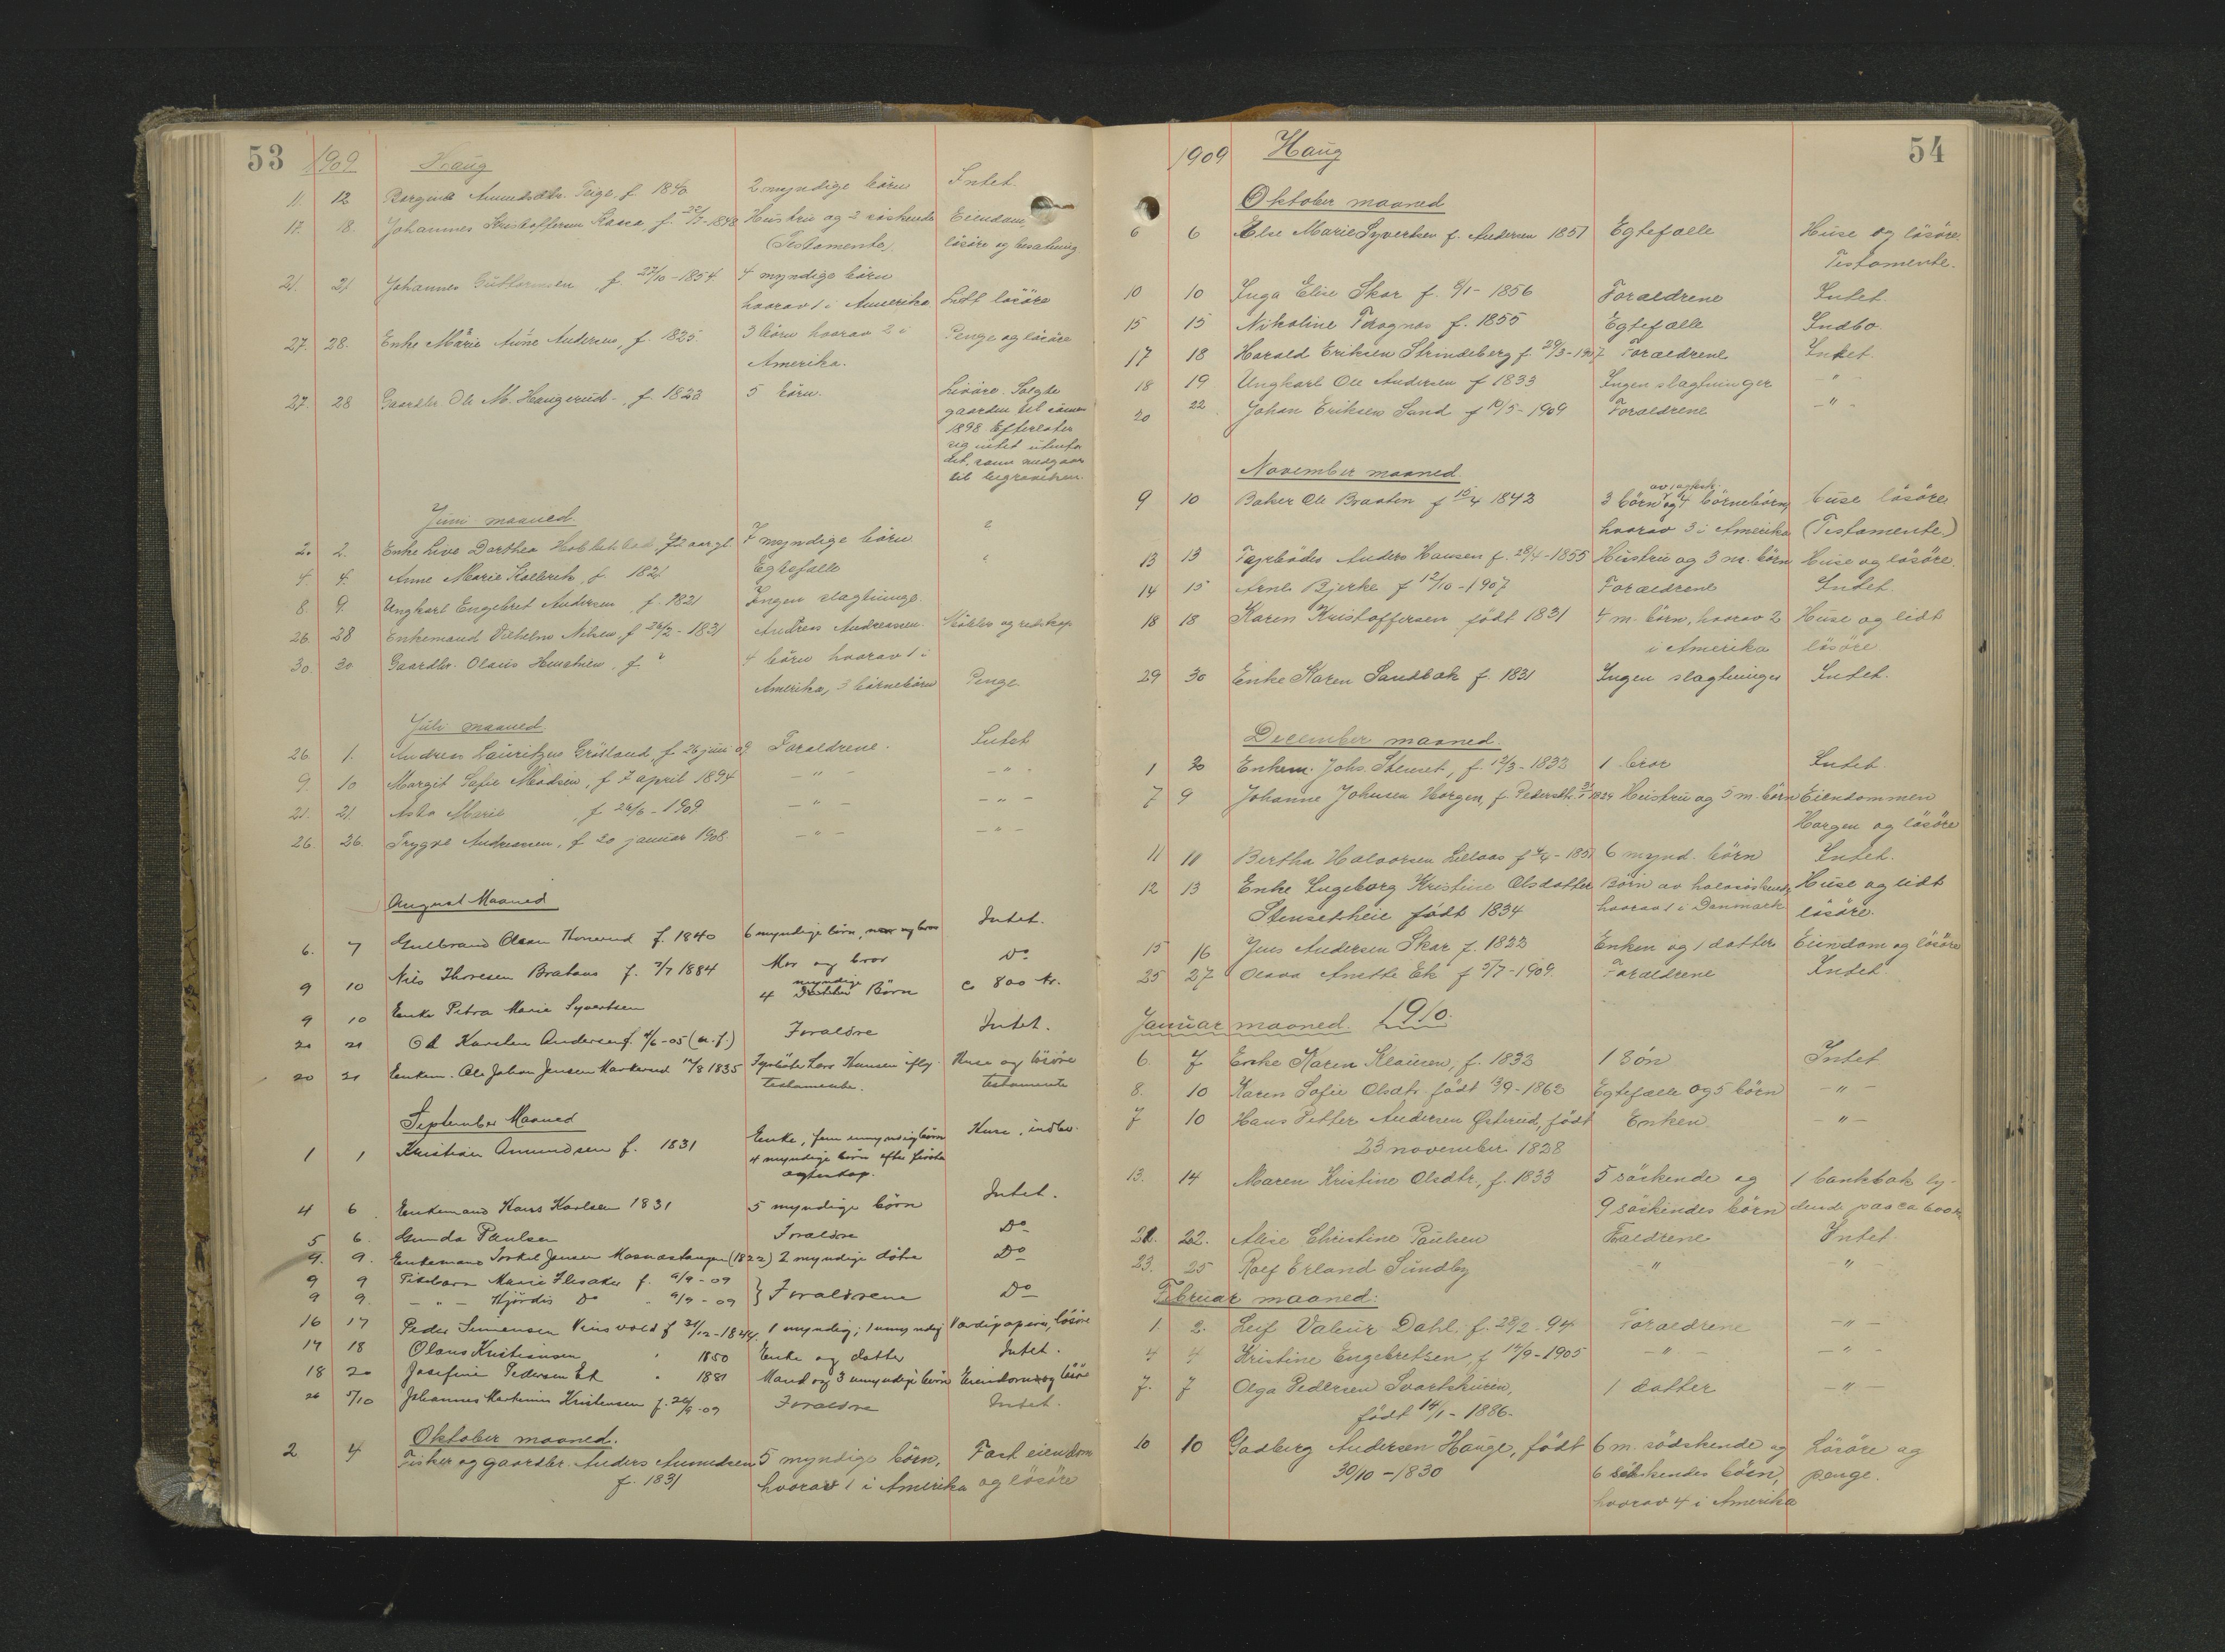 53 1909 Haug
11. 12 Borgine Amundsdtr. Teige, f. 1840 2 myndige börn Intet.
17. 18. Johannes Kristoffersen f. 1848 Hustru og 2 söskende Eiendom,
(Testamente). lösöre og besætning.
21. 21 Johannes Guttormsen f. 27/10-1854. 4 myndige börn
hvorav 1 i Amerika Litt lösöre
27. 28. Enke Marie Aune Andersen, f. 1825. 3 börn hvorav 2 i Penge og lösöre
Amerika.
27. 28 Gaardbr. Ole M. Haugerud, f. 1823 5 börn. Lösöre. Solgte
gaarden til sönnen
1898. Efterlater
sig intet utenfor
det, som medgaar
til begravelsen.
Juni maaned
2. 2. Enke Live Dorthea 72 aar gl. 7 myndige börn "
4. 4. Anne Marie f. 1821 Egtefælle "
8. 9. Ungkarl Engebret Andersen f. 1821 Ingen slagtninge.
26 28 Enkemand Vilhelm Nilsen, f. 26/2-1831 Andreas Andreassen. Möbler og redskap
30. 30 Gaardbr. Olaus f. ? 4 börn hvorav 1 i
Amerika, 3 börnebörn Penge
Juli maaned
26 1. Andrea Lauritzen Grötland, f. 26 juni 09. Forældrene. Intet
9. 10 Margit Sofie Madsen, f. 7 april 1894 - " - - " -
21. 21. Asta Marie , f. 26/6-1909. - " - - " -
26. 26. Trygve Andreassen, f. 20 januar 1908 - " - - " -
August Maaned
6. 7 Gulbrand Olsen f. 1840 6 myndige börn, mor og bror Intet.
9 10 Nils Thoresen Brataas f. 7/7 1884 Mor og bror Do
9 10 Enke Petra Marie Syvertsen 4 myndige Börn c 800 kr.
20 21 Od Karsten Andersen f. 4/6-05 (u.f.) Forældre Intet.
20 21 Enkem. Ole Johan Jensen 12/8 1835 Fyrböter Lars Hansen iflg. Huse og lösöre
testamente. testamente
September Maaned
1 1 Kristian Amundsen f. 1831 Enke, fem umyndig börn Huse, indbo.
4 myndige börn efter förste
egteskap.
4 6 Enkemand Hans Karlsen 1831 5 myndige börn Intet.
5 6. Gunda Paulsen Forældre Do
9. 9. Enkemand Torkel Jensen (1822) 2 myndige dötre Do
9 9 Pikebarn Marie Flesaker f. 9/9-09 } Forældrene Do
9 9. - " - Hjördis Do " 9/9-09
16 17 Peder Simensen f. 31/12-1844. 1 myndig; 1 umyndig Værdipapirer, lösöre
17 18 Olaus Kristiansen " 1850 Enke og datter Intet.
18 20 Josefine Pedersen Ek " 1881 Mand og 3 umyndige börn Eiendom og lösöre
26 5/10 Johannes Martinius Kristensen f. 26/9-09 Forældre Intet.
Oktober maaned.
2 4 Fisker og gaardbr. Anders Amundsen 5 myndige börn, Fast eiendom
f. 1831 hvorav 1 i Amerika og lösöre
1909 Haug 54
Oktober maaned
6 6 Else Marie Syvertsen f. Andersen 1857 Egtefælle Huse og lösöre.
Testamente.
10 10 Inga Elise Skar f. 6/1-1856 Forældrene Intet.
15 15 Nikoline Fragnæs f. 1855 Egtefælle Indbo.
17 18 Harald Eriksen Strindeberg f. 29/3-1907 Forældrene Intet
18 19 Ungkarl Ole Andersen f 1833 Ingen slagtninger - " -
20 22 Johan Eriksen Sund f 10/5-1909 Forældrene - " -
November maaned.
9 10 Baker Ole Braaten f 15/4 1843 3 börn og 4 börnebörn, huse lösöre
hvorav 3 i Amerika (Testamente)
13 13 Fyrböder Anders Hansen f. 28/4-1855 Hustru og 3 m. börn Huse og lösöre.
14 15 Arne Bjerke f 12/10-1907 Forældrene Intet.
18 18 Karen Kristoffersen födt 1831 4 m. börn, hvorav 2 Huse og lidt
i Amerika lösöre
29 30 Enke Karen Sandbak f. 1831 Ingen slagtninger Intet.
December maaned.
1 30 Enkem. Johs. Stenset, f. 12/3-1833 1 bror Intet.
7 9 Johanne Johnsen Horgen, f. Pedersdtr. 1824 Hustru og 5 m. börn Eiendommen
Horgen og lösöre
11 11 Bertha Halvorsen Lillaas f 4/4-1851 6 mynd. börn Intet.
12 13 Enke Ingeborg Kristine Olsdatter Börn av halvsöskende, Huse og lidt
Stensetheie födt 1834 hvorav 1 i Danmark lösöre.
15 16 Jens Andersen Skar f. 1823 Enken og 1 datter Eiendom og lösöre
25 27 Olava Anette Ek f 5/7-1909. Forældrene Intet.
Januar maaned. 1910.
6. 7 Enke Karen Klausen, f. 1833 1 sön Intet
8. 10 Karen Sofie Olsdtr. födt 13/9-1863 Egtefælle og 5 börn - " -
7 10 Hans Petter Andersen Østerud, födt Enken. - " -
23 november 1828
13. 14 Maren Kristine Olsdtr, f. 1833 5 söskende og 1 bankbok ly-
9 söskendes börn dende paa ca 600 kr
21. 22. Alise Christine Paulsen Forældrene Intet.
23. 25 Rolf Erland Sundby - " - - " -
Februar maaned:
1. 2. Leif Valeur Dahl, f. 28/2-94 Forældrene - " -
4 4 Kristine Engebretsen, f 14/9-1905 - " - - " -
7. 7 Olga Pedersen Svartskuren, 1 datter - " -
födt 14/1-1886.
10 10 Gadberg Andersen Hauge, födt 6 m. södskende og Lösöre og
30/10-1830 6 söskendes börn, penge.
hvorav 4 i Amerika